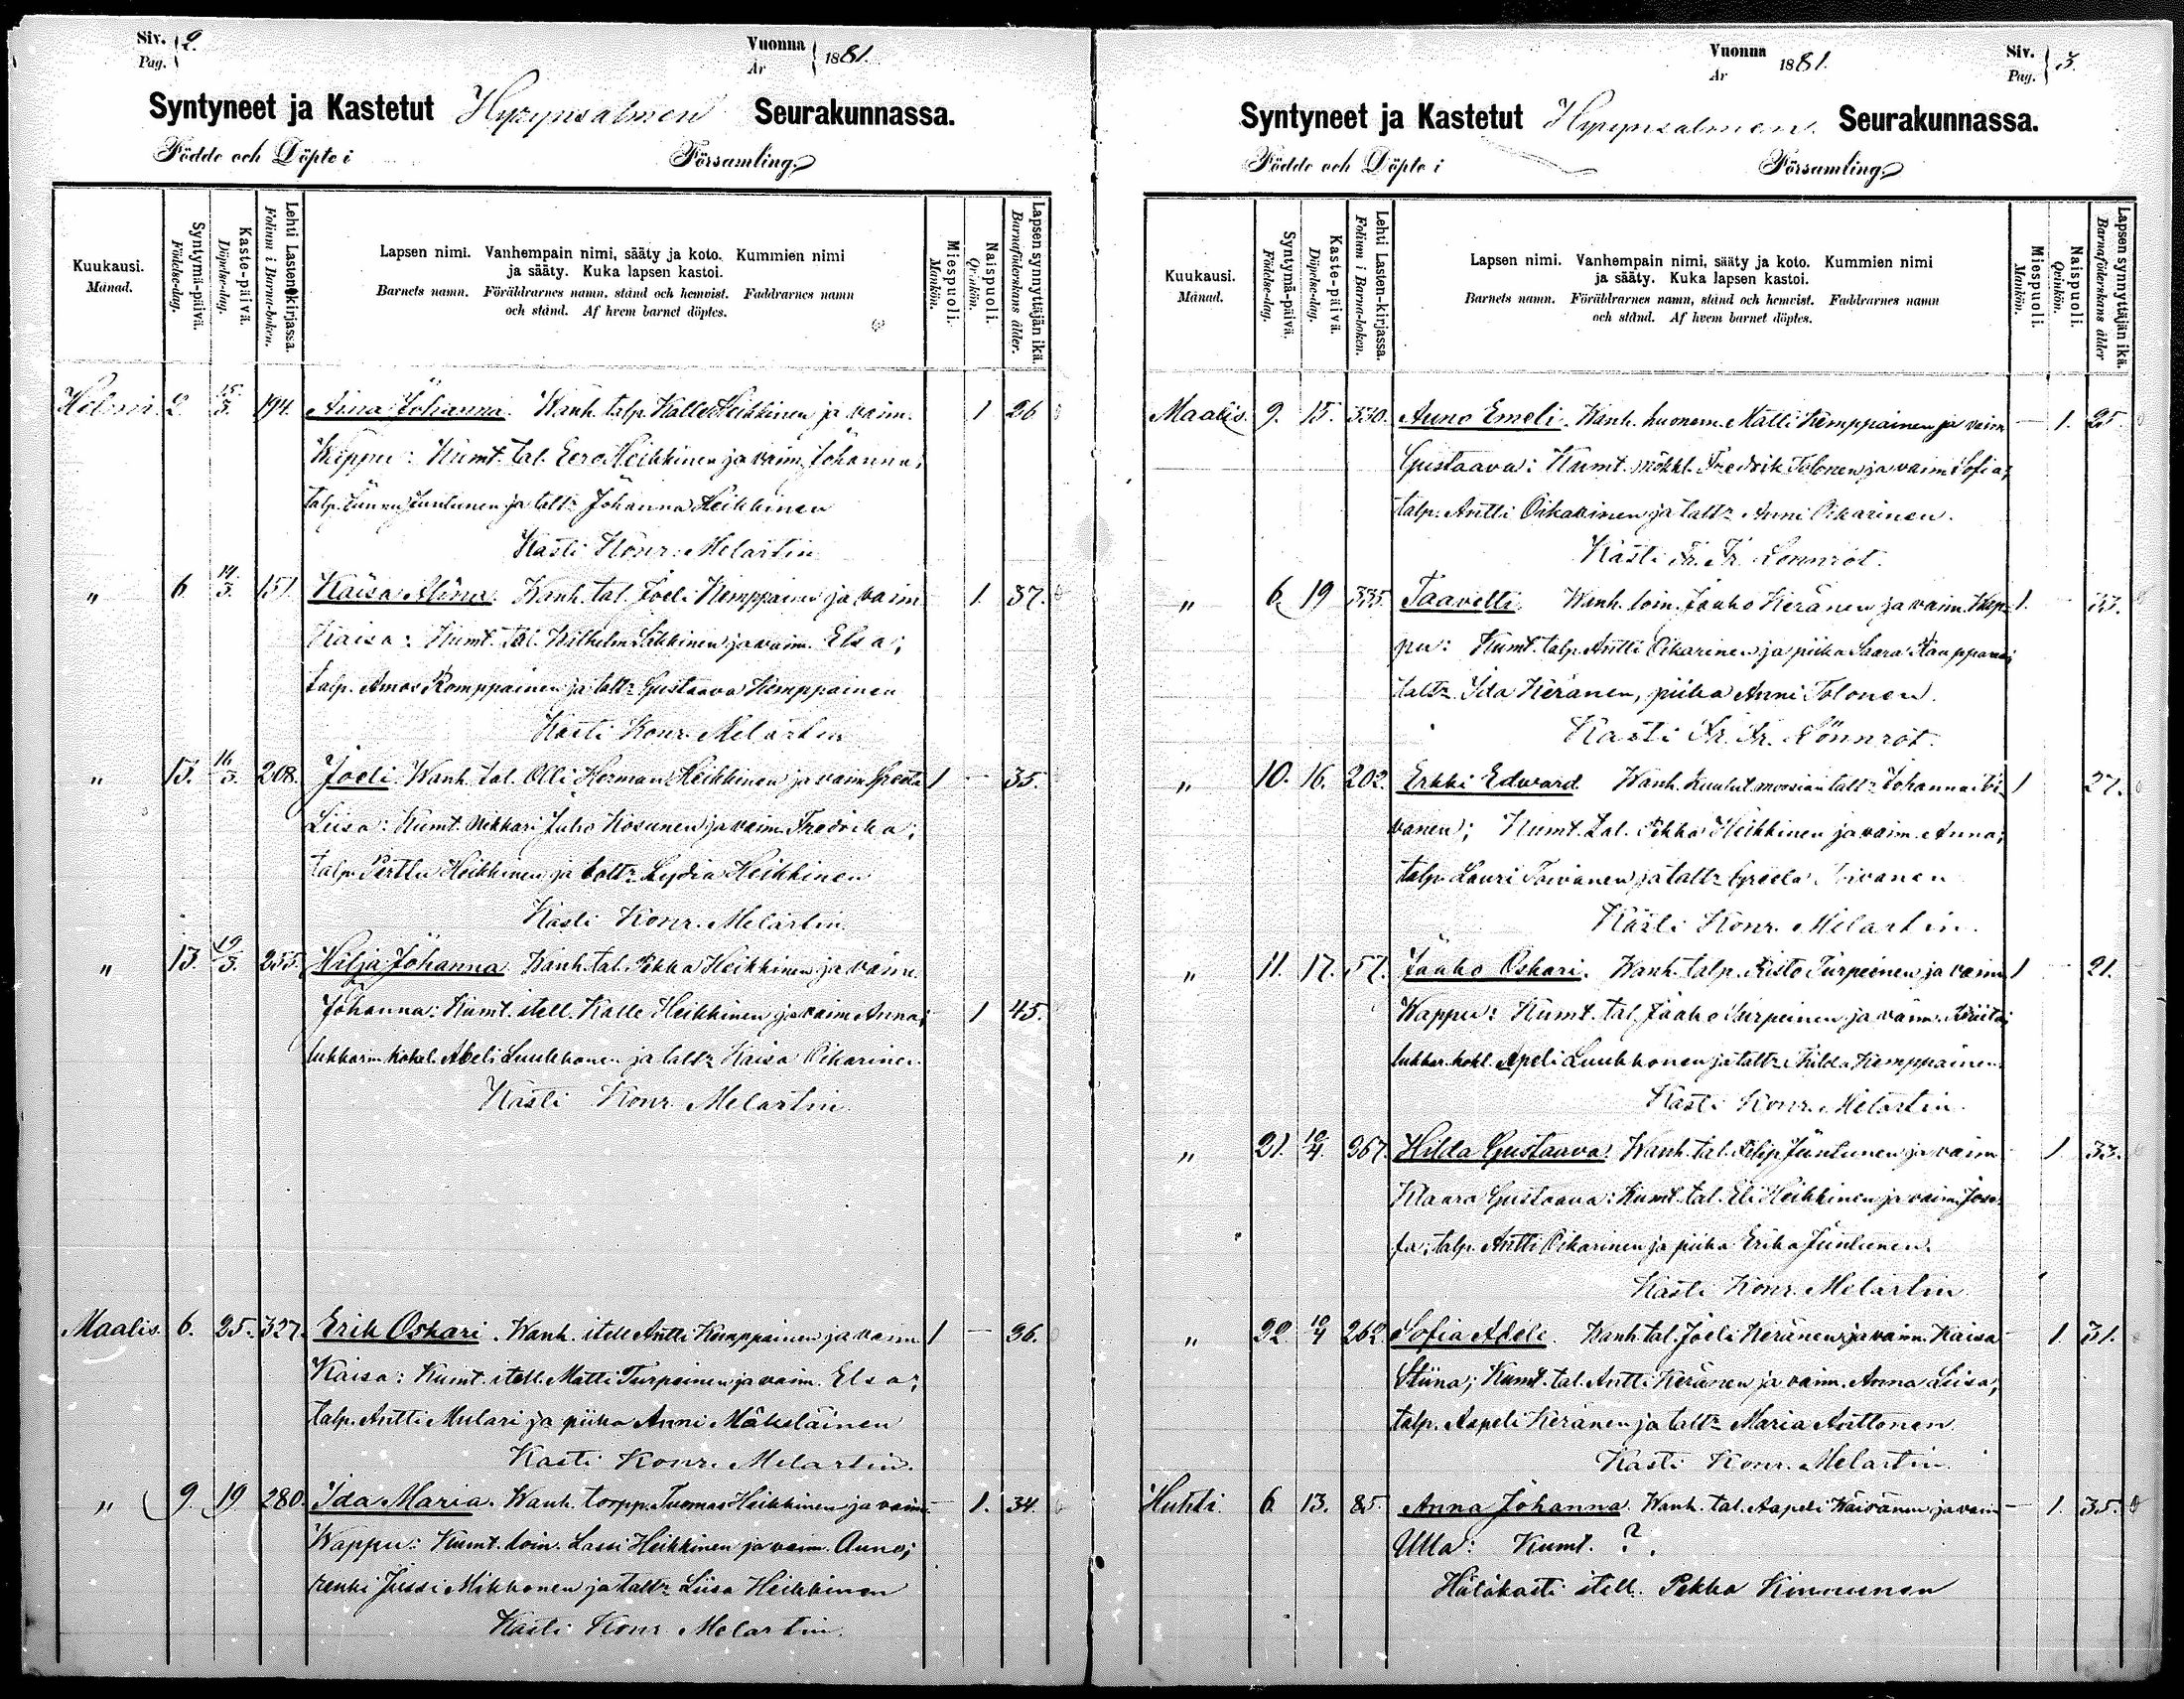 Siv. 2.
Pag.
Vuonna 1881.
År
Syntyneet ja Kastetut Hyrynsalmen Seurakunnassa.
Födde och Döpte i Församling
Kuukausi.
Månad.
Syntymä-päivä.
Födelse-dag.
Kaste-päivä.
Döpelse-dag.
Lehti Lasten-kirjassa.
Folium i Barna-boken.
Lapsen nimi. Vanhempain nimi, sääty ja koto. Kummien nimi
ja sääty. Kuka lapsen kastoi.
Barnets namn. Föräldrarnes namn, stånd och hemvist. Faddrarnes namn
och stånd. Af hvem barnet döptes.
Miespuoli.
Mankön.
Naispuoli.
Qvinkön.
Lapsen synnyttäjän ikä.
Barnaföderskans ålder.
Helmi. 2 15/3. 194. Aina Johanna. Wanh. talp. Kalle Heikkinen ja vaim. 1 26
Wappu: Kumt. tal. Eero Heikkinen ja vaim. Johanna;
talp. Juntunen ja taltr Johanna Heikkinen
Kasti Konr. Melartin
" 6. 14/3. 151. Kaisa Alina. Wanh. tal. Joeli Kemppainen ja vaim 1. 37.
Kaisa: Kumt. tal. Wilhelm Likkinen ja vaim. Elsa;
talp. Amos Romppainen ja taltr Gustaava Kemppainen
Kasti Konr. Melartin
" 13. 16/3. 208. Joeli. Wanh. tal. Olli Herman Heikkinen ja vaim Greeta 1 — 35.
Liisa: Kumt. Nikkari Juho Kosunen ja vaim. Fredrika;
talp. Perttu Heikkinen ja taltr Lydia Heikkinen
Kasti Konr. Melartin.
" 13. 19/3. 255. Hilja Johanna. Wanh. tal. Pekka Heikkinen ja vaim.
Johanna: Kumt. itell. Kalle Heikkinen ja vaim Anna; 1 45.
lukkarin kokel. Abeli Luukkonen ja taltr Kaisa Oikarinen.
Kasti Konr. Melartin.
Maalis. 6. 25. 327. Erik Oskari. Wanh. itell Antti Kemppainen ja vaim. 1 — 36.
Kaisa: Kumt. itell. Matti Turpeinen ja vaim. Elsa;
talp. Antti Mulari ja piika Anni Mäkeläinen
Kasti Konr. Melartin.
" 9. 19 280. Ida Maria. Wanh. torpp. Tuomas Heikkinen ja vaim 1. 34.
Wappu: Kumt. loin. Lassi Heikkinen ja vaim. Anna;
renki Jussi Mikkonen ja taltr Liisa Heikkinen
Kasti Konr. Melartin.
Vuonna 1881.
År
Siv. 3.
Pag.
Syntyneet ja Kastetut Hyrynsalmen. Seurakunnassa.
Födde och Döpte i Församling
Kuukausi.
Månad.
Syntymä-päivä.
Födelse-dag.
Kaste-päivä.
Döpelse-dag.
Lehti Lasten-kirjassa.
Folium i Barna-boken.
Lapsen nimi. Vanhempain nimi, sääty ja koto. Kummien nimi
ja sääty. Kuka lapsen kastoi.
Barnets namn. Föräldrarnes namn, stånd och hemvist. Faddrarnes namn
och stånd. Af hvem barnet döptes.
Miespuoli.
Mankön.
Naispuoli.
Qvinkön.
Lapsen synnyttäjän ikä.
Barnaföderskans ålder
Maalis. 9. 15. 330. Auno Emeli. Wanh. huonem. Matti Kemppainen ja vaim — 1. 25.
Gustaava: Kumt. mökkl. Fredrik Tolonen ja vaim Sofia;
talp. Antti Oikarinen ja taltr Anni Oikarinen.
Kasti Fr. Fr. Lönnrot.
" 6. 19 335. Taavetti. Wanh. loin. Jaako Keränen ja vaim. Wap- 1. 33.
pu: Kumt. talp. Antti Oikarinen ja piika Saara Kauppanen
taltr. Ida Keränen, piika Anni Tolonen.
Kasti Fr. Fr. Lönnrot.
" 10. 16. 202. Erkki Edward. Wanh. taltr Johanna 1 27.
vanen; Kumt. tal. Pekka Heikkinen ja vaim. Anna;
talp. Lauri Toivanen ja taltr Greeta
Kasti Konr. Melartin.
" 11. 17. 57. Jaako Oskari. Wanh. talp. Risto Turpeinen ja vaim 1 — 21.
Wappu: Kumt. tal. Jaako Turpeinen ja vaim.
lukkar. kokl. Apeli Luukkonen ja taltr Hilda Kemppainen.
Kasti Konr. Melartin.
" 21. 10/4. 367. Hilda Gustaava. Wanh. tal. Filip Juntunen ja vaim 1. 33.
Klaara Gustaava: Kumt. tal. Eli Heikkinen ja vaim. Jose-
fa; talp. Antti Oikarinen ja piika Erika Juntunen.
Kasti Konr. Melartin.
" 22. 10/4 262. Sofia Adele. Wanh. tal. Joeli Keränen ja vaim. Kaisa 1. 31.
Stiina; Kumt. tal. Antti Keränen ja vaim. Anna Liisa;
talp. Aapeli Keränen ja taltr Maria Anttonen.
Kasti Konr. Melartin.
Huhti. 6. 13. 85. Anna Johanna. Wanh. tal. Aapeli Wäisänen ja vaim — 1. 35.
Ulla: Kumt. ?.
Hätäkasti itell. Pekka Kinnunen